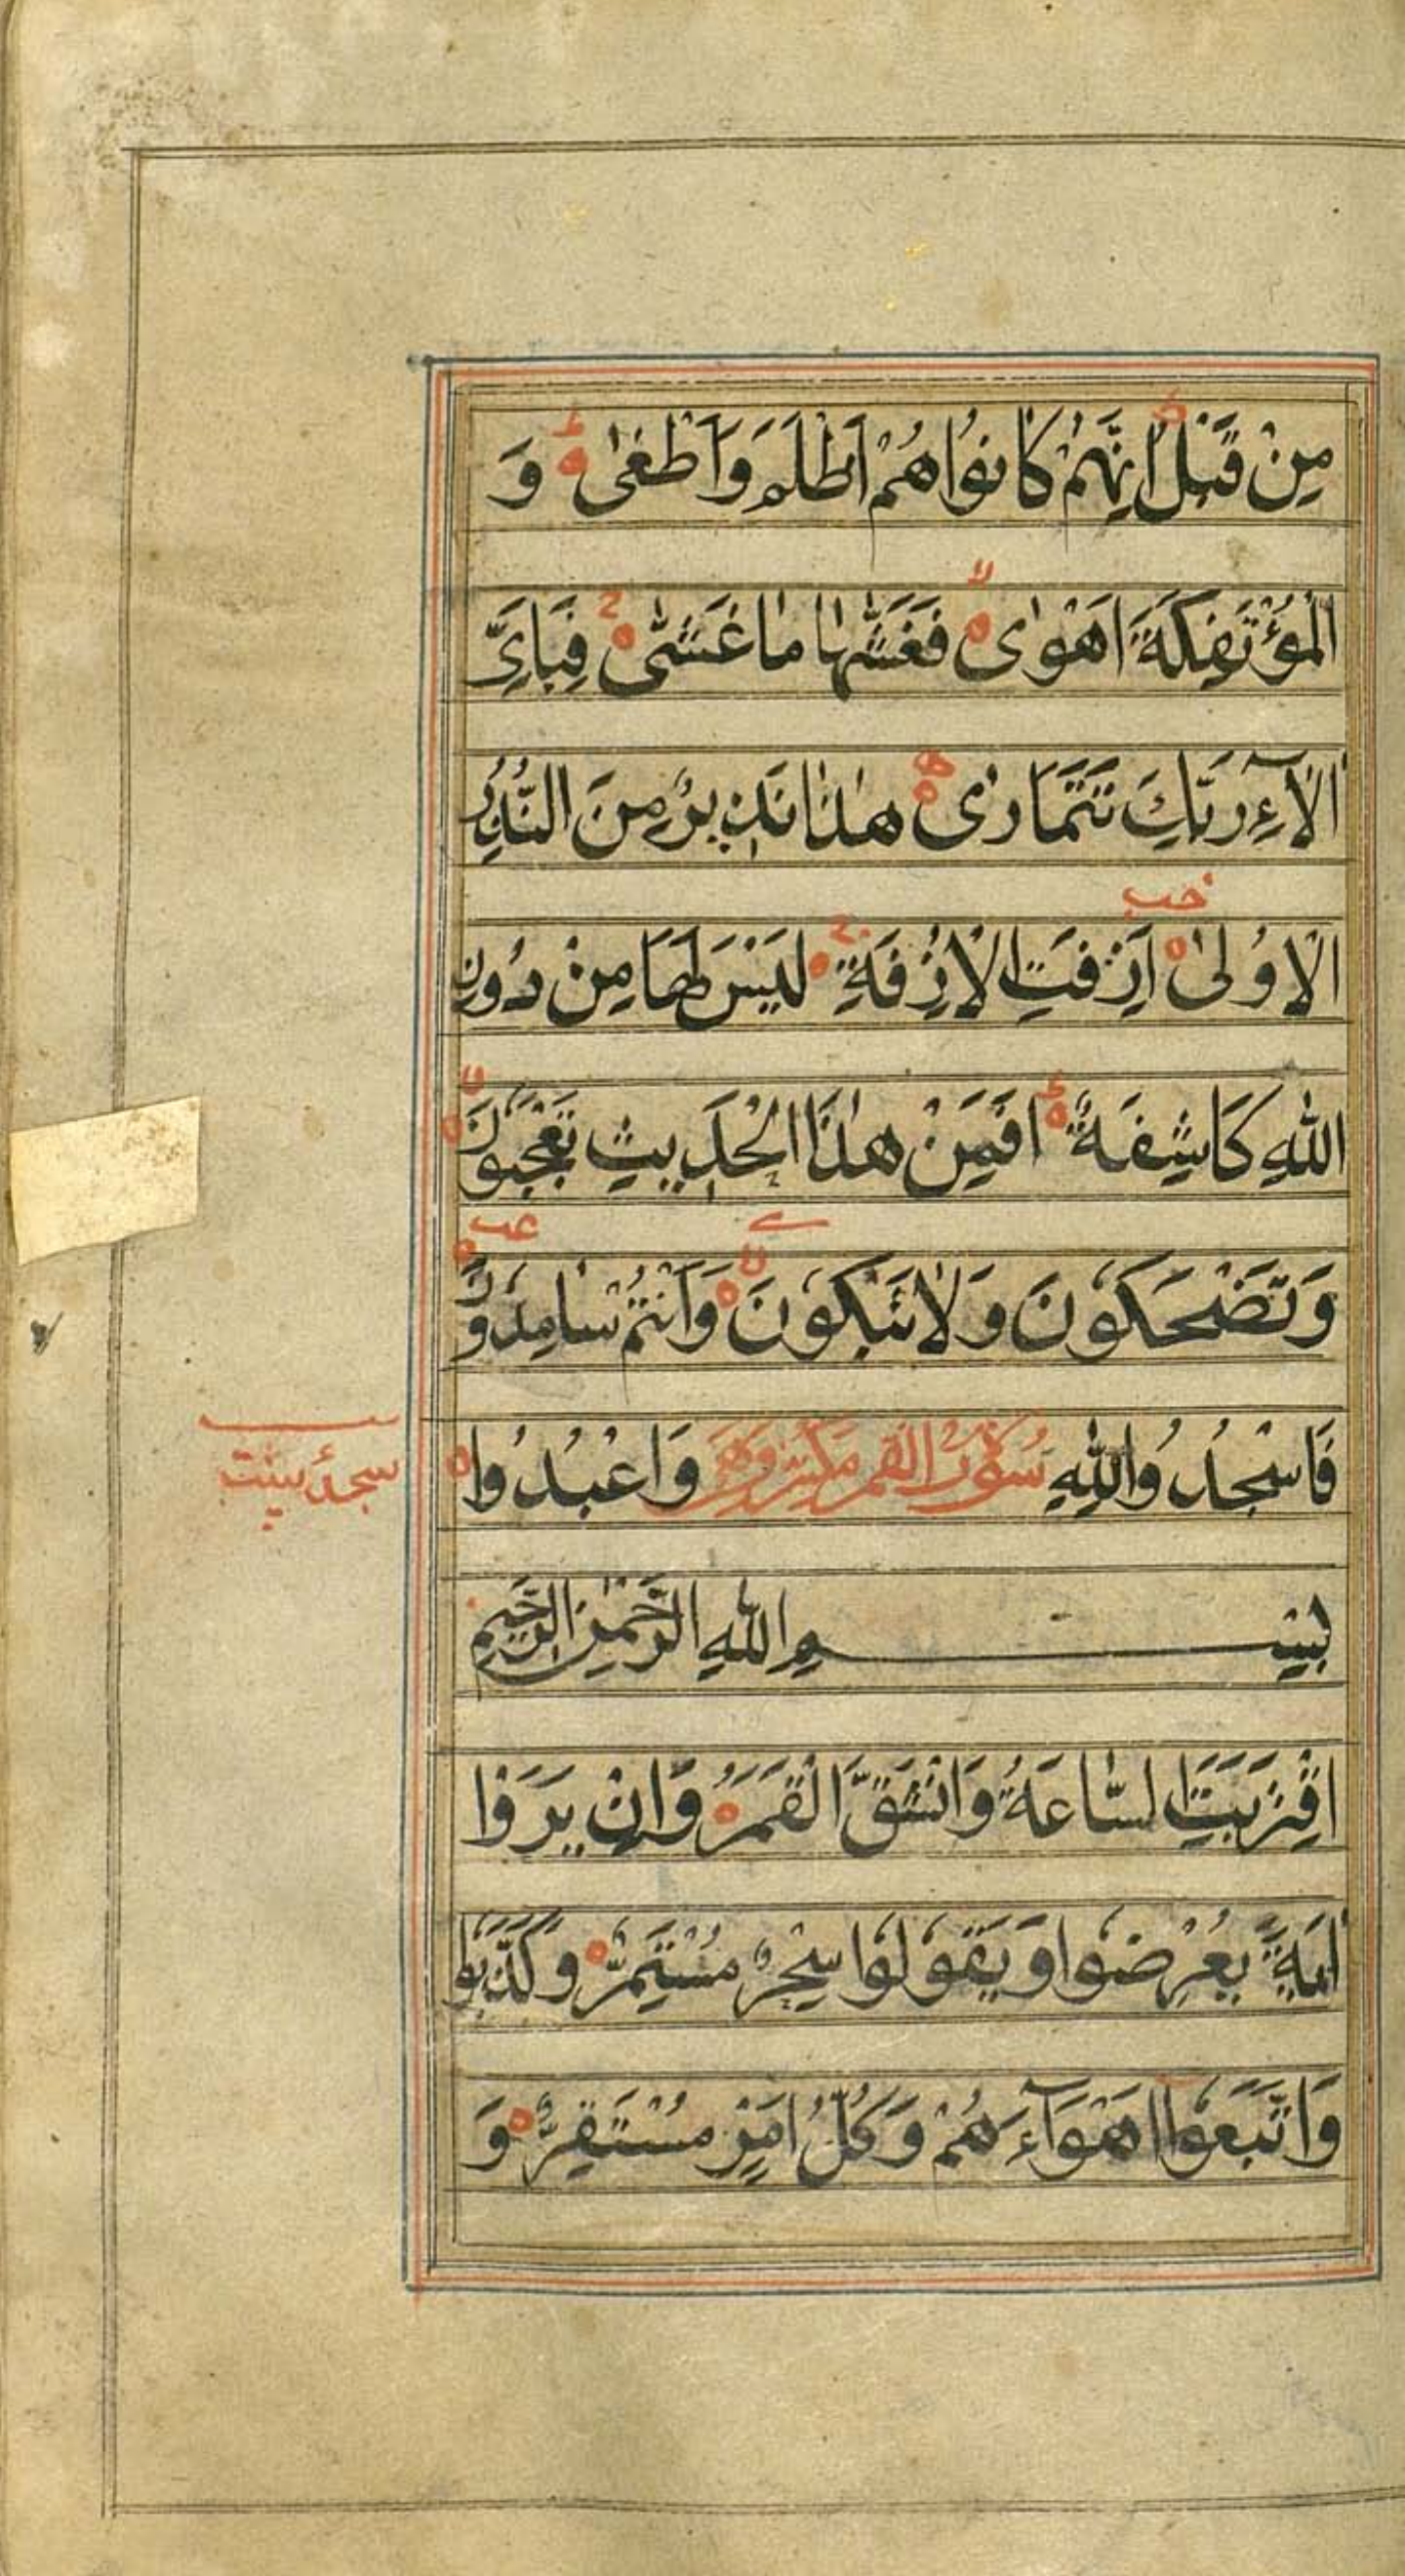 مِنْ قَبْلُ اِنَّهُمْ كَانُوا هُمْ اَظْلَمَ وَاَطْغٰى وَ
الْمُؤْتَفِكَةَ اَهْوٰى فَغَشّٰهَا مَا غَشّٰى فَبِاَىِّ
اٰلَآءِ رَبِّكَ تَتَمَارٰى هٰذَا نَذِيرٌ مِنَ النُّذُرِ
الْاُولٰى اَزِفَتِ الْاٰزِفَةُ لَيْسَ لَهَا مِنْ دُونِ
اللّٰهِ كَاشِفَةٌ اَفَمِنْ هٰذَا الْحَدِيثِ تَعْجَبُونَ
وَتَضْحَكُونَ وَلَا تَبْكُونَ وَاَنْتُمْ سَامِدُونَ
فَاسْجُدُوا لِلّٰهِ سُورَةُ الْقَمَرِ وَاعْبُدُوا
سجدۀ
بِسْمِ اللّٰهِ الرَّحْمٰنِ الرَّحِيمِ
اِقْتَرَبَتِ السَّاعَةُ وَانْشَقَّ الْقَمَرُ وَاِنْ يَرَوْا
اٰيَةً يُعْرِضُوا وَيَقُولُوا سِحْرٌ مُسْتَمِرٌّ وَكَذَّبُوا
وَاتَّبَعُوا اَهْوَآءَهُمْ وَكُلُّ اَمْرٍ مُسْتَقِرٌّ وَ